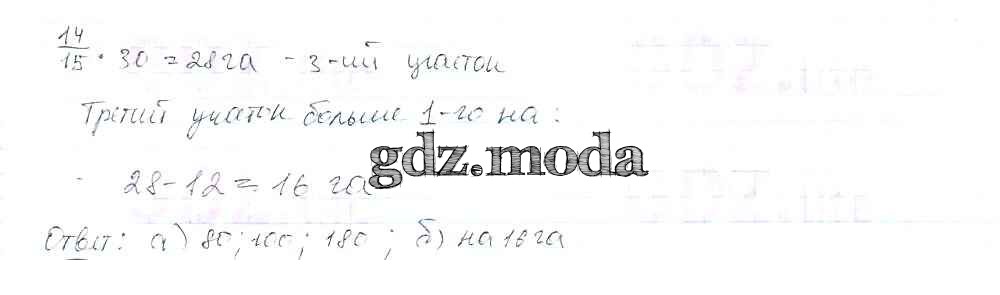 14/15 · 30 = 28 га - 3-ий участок
Третий участок больше 1-го на:
gdz.moda
28-12 = 16 га
Ответ: а) 80; 100; 180 ; б) на 16 га